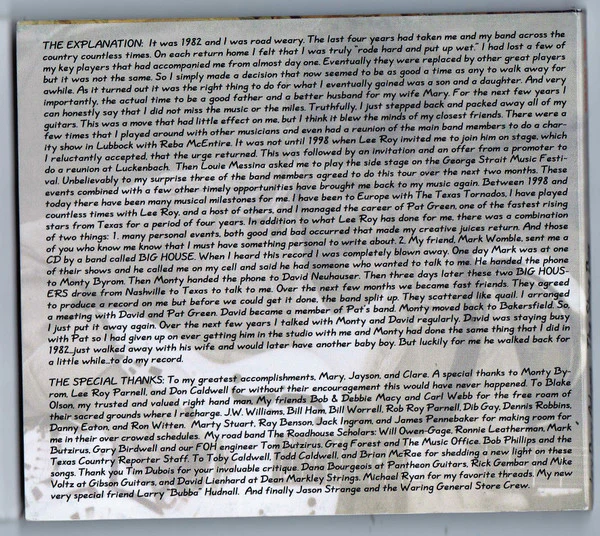 THE EXPLANATION: It was 1982 and I was road weary. The last four years had taken me and my band across the
country countless times. On each return home I felt that I was truly "rode hard and put up wet." I had lost a few of
my key players that had accompanied me from almost day one. Eventually they were replaced by other great players
but it was not the same. So I simply made a decision that now seemed to be as good a time as any to walk away for
awhile. As it turned out it was the right thing to do for what I eventually gained was a son and a daughter. And very
importantly, the actual time to be a good father and a better husband for my wife Mary. For the next few years I
can honestly say that I did not miss the music or the miles. Truthfully, I just stepped back and packed away all of my
guitars. This was a move that had little effect on me, but I think it blew the minds of my closest friends. There were a
few times that I played around with other musicians and even had a reunion of the main band members to do a char-
ity show in Lubbock with Reba McEntire. It was not until 1998 when Lee Roy invited me to join him on stage, which
I reluctantly accepted, that the urge returned. This was followed by an invitation and an offer from a promoter to
do a reunion at Luckenbach. Then Louie Messina asked me to play the side stage on the George Strait Music Festi-
val. Unbelievably to my surprise three of the band members agreed to do this tour over the next two months. These
events combined with a few other timely opportunities have brought me back to my music again. Between 1998 and
today there have been many musical milestones for me. I have been to Europe with The Texas Tornados, I have played
countless times with Lee Roy, and a host of others, and I managed the career of Pat Green, one of the fastest rising
stars from Texas for a period of four years. In addition to what Lee Roy has done for me, there was a combination
of two things: 1. many personal events, both good and bad occurred that made my creative juices return. And those
of you who know me know that I must have something personal to write about. 2. My friend, Mark Womble, sent me a
CD by a band called BIG HOUSE. When I heard this record I was completely blown away. One day Mark was at one
of their shows and he called me on my cell and said he had someone who wanted to talk to me. He handed the phone
to Monty Byrom. Then Monty handed the phone to David Neuhauser. Then three days later these two BIG HOUS-
ERS drove from Nashville to Texas to talk to me. Over the next few months we became fast friends. They agreed
to produce a record on me but before we could get it done, the band split up. They scattered like quail. I arranged
a meeting with David and Pat Green. David became a member of Pat's band. Monty moved back to Bakersfield. So,
I just put it away again. Over the next few years I talked with Monty and David regularly. David was staying busy
with Pat so I had given up on ever getting him in the studio with me and Monty had done the same thing that I did in
1982...just walked away with his wife and would later have another baby boy. But luckily for me he walked back for
a little while...to do my record.
THE SPECIAL THANKS: To my greatest accomplishments, Mary, Jayson, and Clare. A special thanks to Monty By-
rom, Lee Roy Parnell, and Don Caldwell for without their encouragement this would have never happened. To Blake
Olson, my trusted and valued right hand man. My friends Bob & Debbie Macy and Carl Webb for the free roam of
their sacred grounds where I recharge. J.W. Williams, Bill Ham, Bill Worrell, Rob Roy Parnell, Dib Gay, Dennis Robbins,
Danny Eaton, and Ron Witten. Marty Stuart, Ray Benson, Jack Ingram, and James Pennebaker for making room for
me in their over crowed schedules. My road band The Roadhouse Scholars: Will Owen-Gage, Ronnie Leatherman, Mark
Butzirus, Gary Birdwell and our FOH engineer Tom Butzirus. Greg Forest and The Music Office. Bob Phillips and the
Texas Country Reporter Staff. To Toby Caldwell, Todd Caldwell, and Brian McRae for shedding a new light on these
songs. Thank you Tim Dubois for your invaluable critique. Dana Bourgeois at Pantheon Guitars, Rick Gembar and Mike
Voltz at Gibson Guitars, and David Lienhard at Dean Markley Strings. Michael Ryan for my favorite threads. My new
very special friend Larry "Bubba" Hudnall. And finally Jason Strange and the Waring General Store Crew.